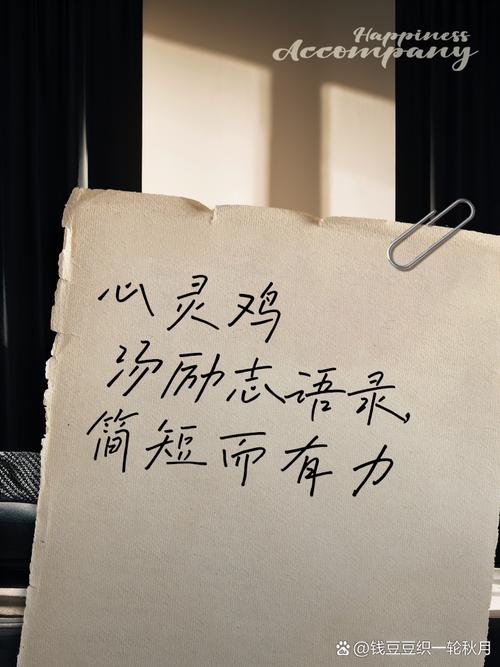 Happiness
Accompany
心灵鸡
汤励志语录,
简短而有力
@钱豆豆织一轮秋月